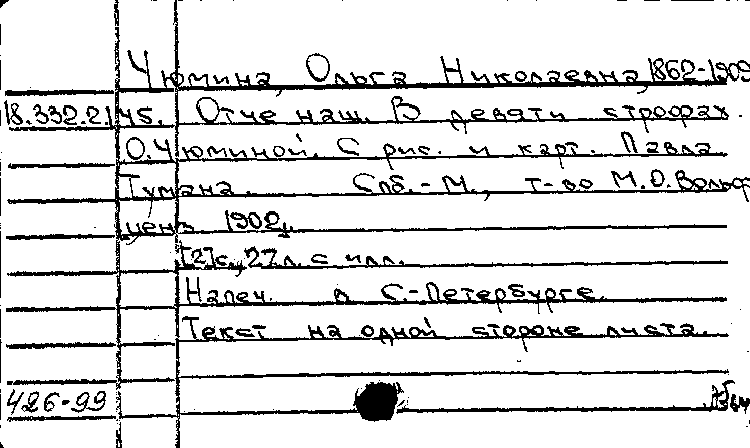 Чюмина, Ольга Николаевна, 1862-1909
18.332.2.145. Отче наш. В девяти строфах.
О.Чюминой. С рис. и карт. Павла
Тумана. Спб.-М., т-во М.О.Вольф,
ценз 1902г.
[2]с., 27л. с илл.
Напеч. в С.-Петербурге.
Текст на одной стороне листа.
426-99